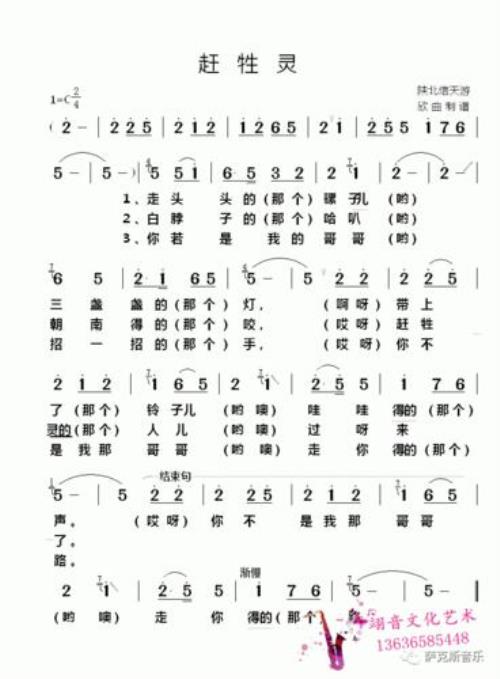 赶 牲 灵
1=C 2/4
陕北信天游
欣 曲 制 谱
( 2 - | 2 2 5 | 5 1 2 | 1 6 5 | 2 1 | 2 5 5 | 1 7 6 |
5 - | 5 - ) | 5 5 1 | 6 5 3 2 | 2 1 |
1、走 头 头 的 (那 个) 骡 子儿 (哟)
2、白 脖 子 的 (那 个) 哈 叭 (哟)
3、你 若 是 我 的 哥 哥 (哟)
6 5 | 2 1 6 5 | 5 - | 5 2 | 2 5 |
三 盏 盏 的 (那 个) 灯, (啊 呀) 带 上
朝 南 得 的 (那 个) 咬, (哎 呀) 赶 牲
招 一 招 的 (那 个) 手, (哎 呀) 你 不
2 1 2 | 1 6 5 | 2 1 | 2 5 5 | 1 7 6 |
了 (那 个) 铃 子儿 (哟 噢) 哇 哇 得的 (那 个)
灵的 (那 个) 人 儿 (哟 噢) 过 呀 来
是 我 那 哥 哥 (哟 噢) 走 你 得的 (那 个)
结束句
5 - | 5 2 2 | 2 5 | 2 2 | 1 6 5 |
声。 (哎 呀) 你 不 是 我 那 哥 哥
了。
路。
渐慢
2 1 | 2 5 5 | 1 7 6 | 5 - | 5 - |
(哟 噢) 走 你 得的 (那 个)
翊音文化艺术
13636585448
萨克斯音乐